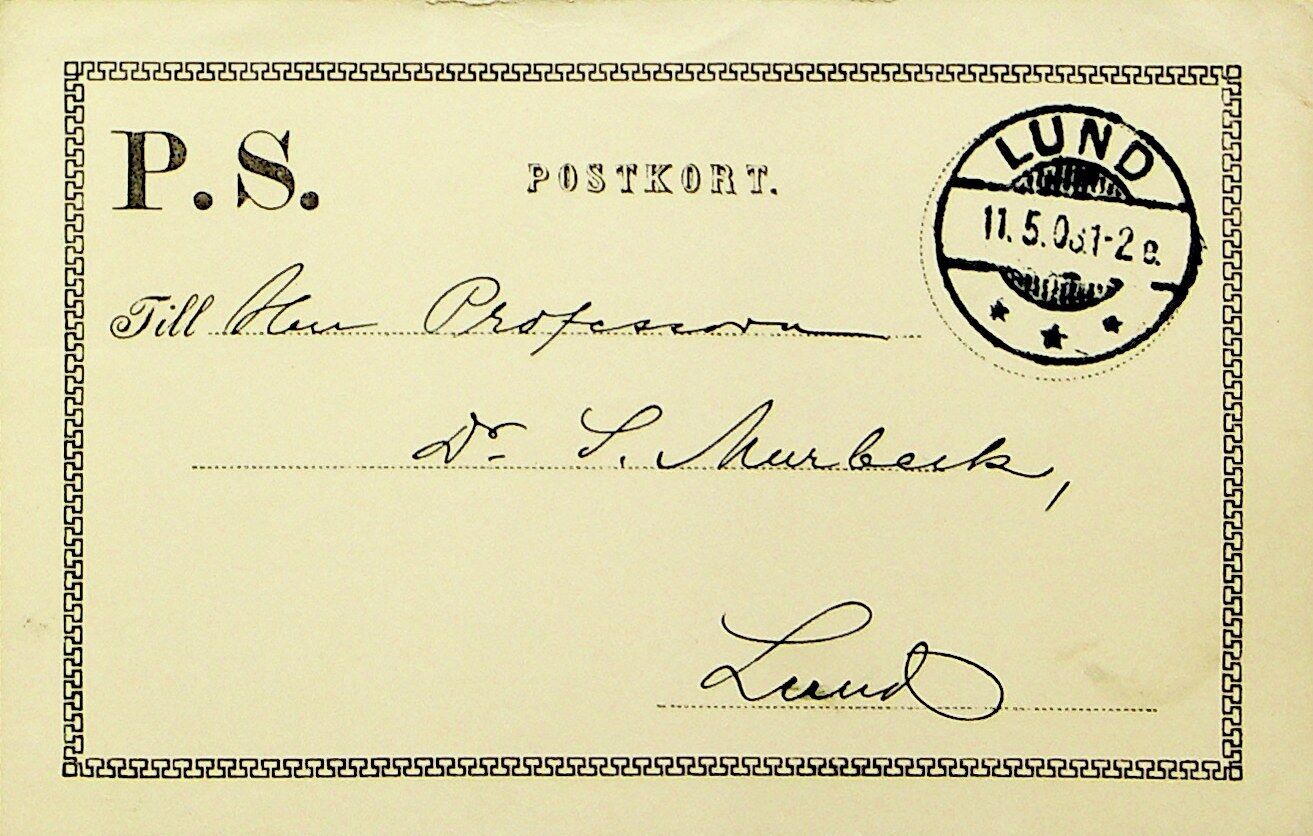 P. S.
POSTKORT.
LUND
11. 5. 1-2 e.
Till Herr Professorn
Dr S. Murbeck,
Lund